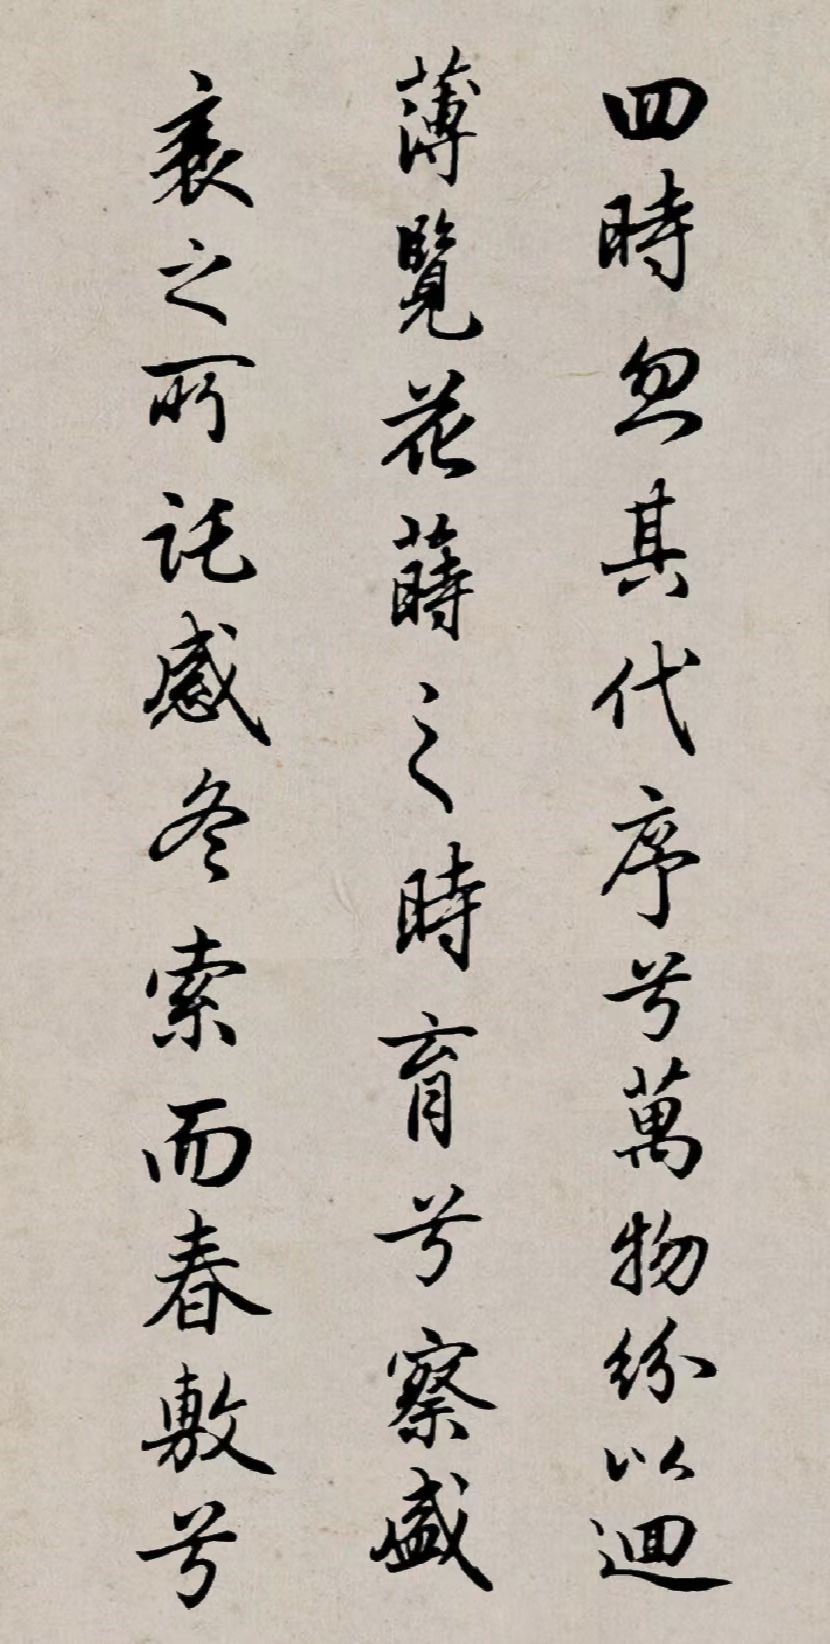 四時忽其代序兮萬物紛以迴
薄覽花蒔之時育兮察盛
衰之所託感冬索而春敷兮